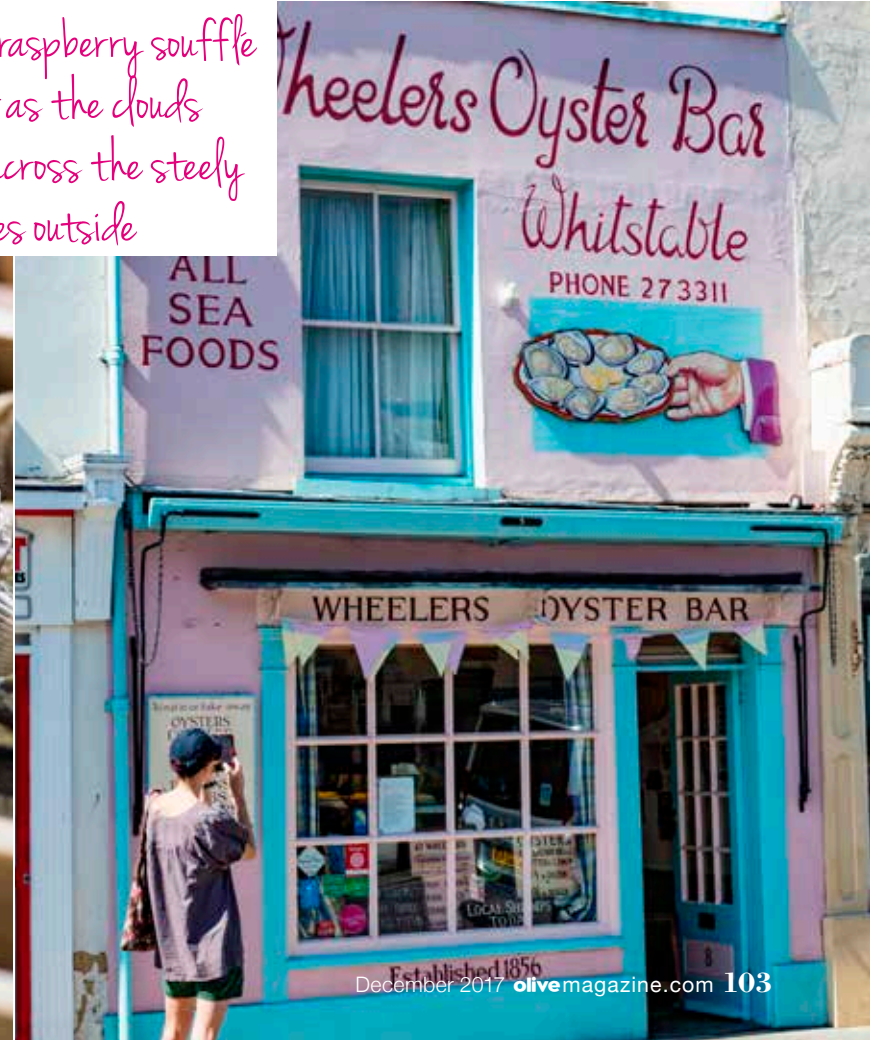 raspberry soufflé
as the clouds
across the steely
outside
Wheelers Oyster Bar
Whitstable
PHONE 273311
ALL
SEA
FOODS
WHEELERS OYSTER BAR
OYSTERS
LOCAL
TODAY
8
Established 1856
December 2017 olivemagazine.com 103